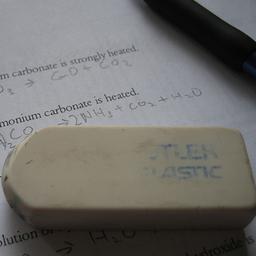 m carbonate is strongly heated.
O₃ → CaO + CO₂
monium carbonate is heated.
CO → 2NH₃ + CO₂ + H₂O
TLER
PLASTIC
olution o
→ H₂O
droxide is